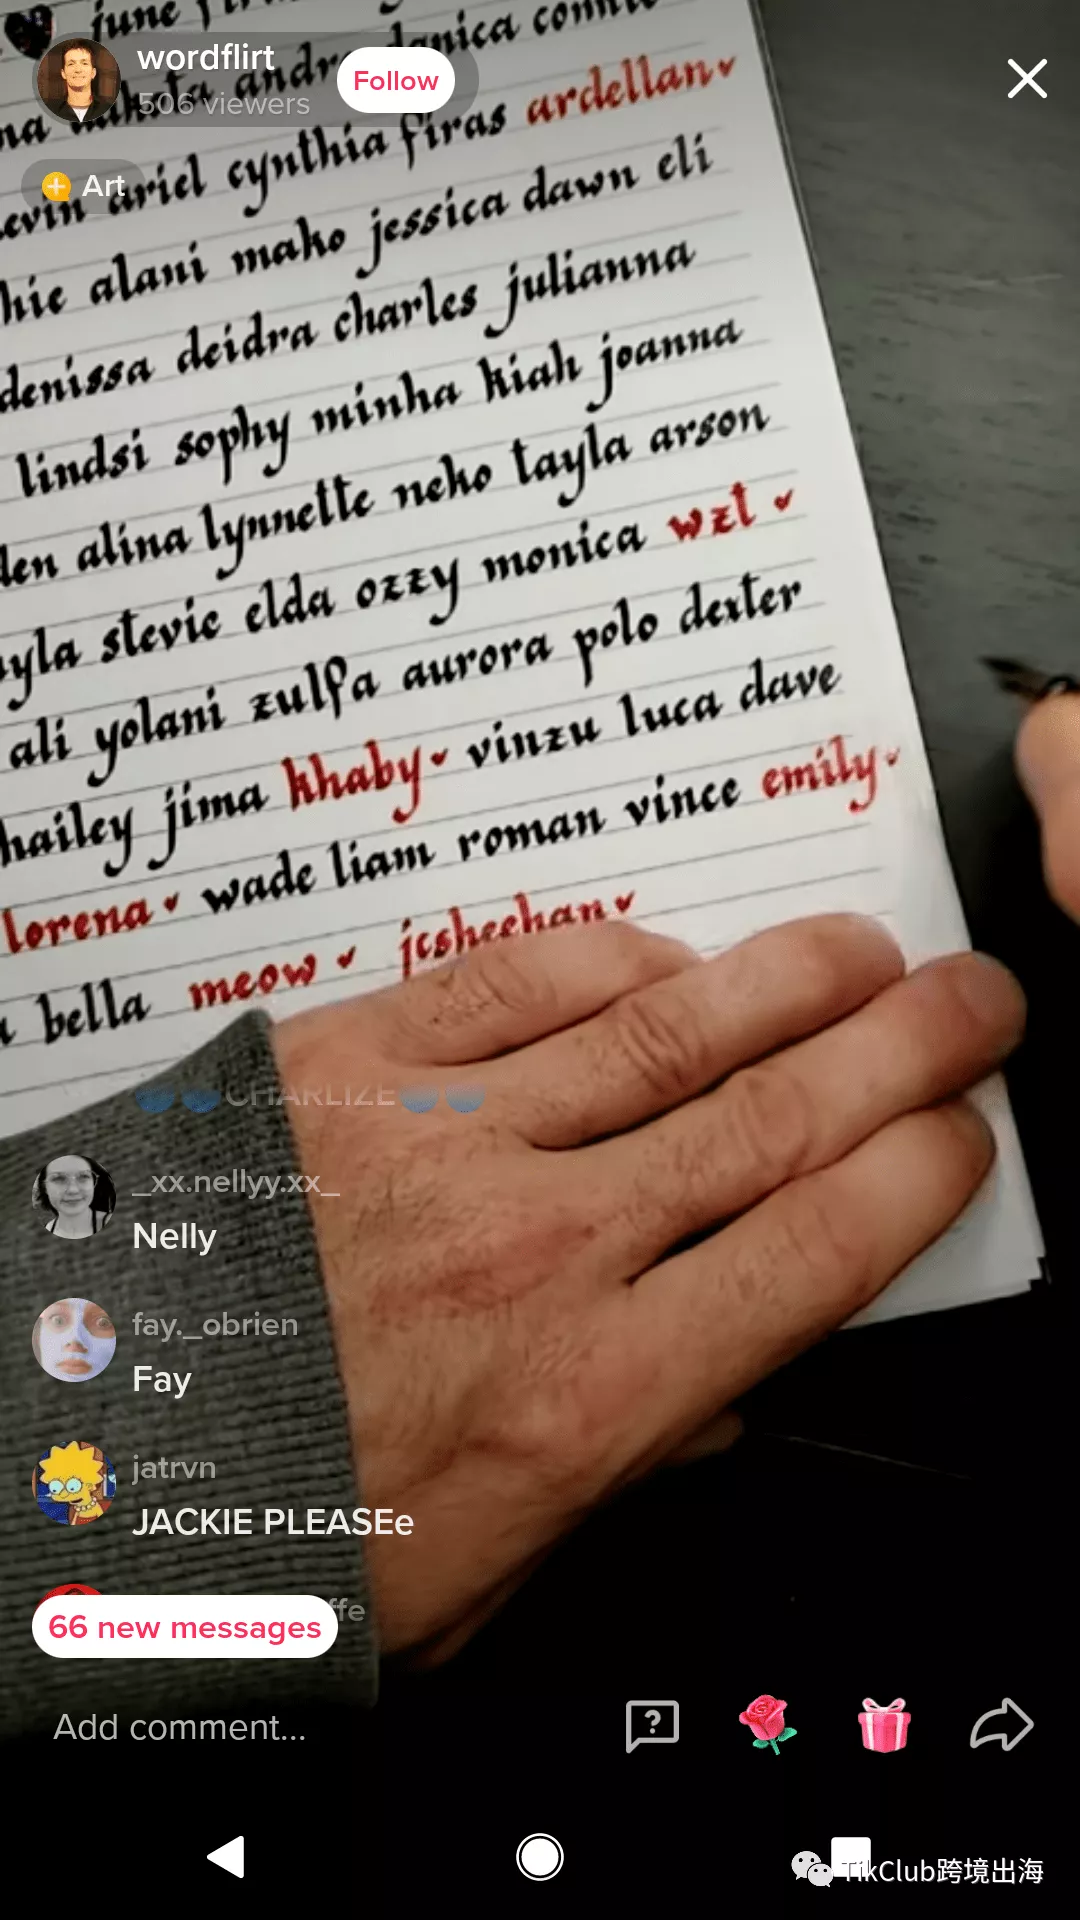 june
wordflirt
506 viewers
Follow
danica
na dakota andre
ardellan✓
Art
ariel cynthia firas
alani mako jessica dawn eli
denissa deidra charles julianna
lindsi sophy minha kiah joanna
alina lynnette neko tayla arson
stevie elda ozzy monica wzt ✓
ali yolani zulfa aurora polo dexter
hailey jima khaby✓ vinzu luca dave
lorena✓ wade liam roman vince emily✓
bella meow ✓ jcsheehan✓
CHARLIZE
_xx.nellyy.xx_
Nelly
fay._obrien
Fay
jatrvn
JACKIE PLEASEe
66 new messages
Add comment...
TikClub跨境出海